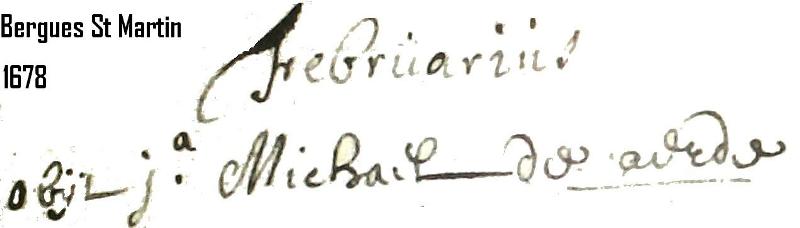 Bergues St Martin
1678
Februarius
obijt j.a Michael de